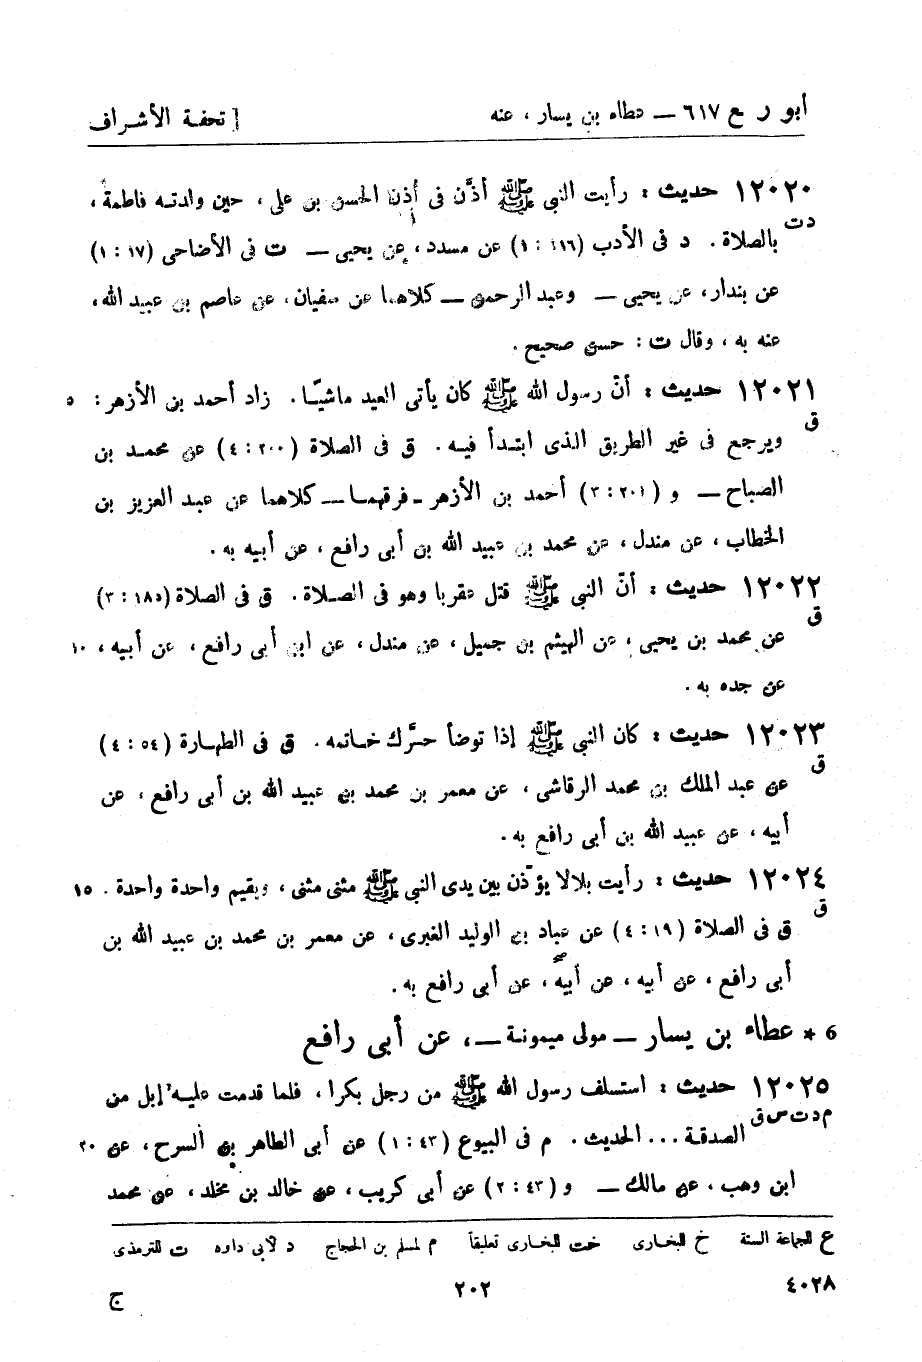 أبو ر ع ٦١٧ — عطاء بن يسار ، عنه [ تحفة الأشراف
١٢٠٢٠ حديث : رأيت النبي ﷺ أذَّن فى أذن الحسن بن على ، حين ولدته فاطمة ،
دت بالصلاة . د فى الأدب (١١٦ : ١) عن مسدد ، عن يحيى — ت فى الأضاحى (١٧ : ١)
عن بندار، عن يحيى — وعبد الرحمن — كلاهما عن سفيان، عن عاصم بن عبيد الله،
عنه به ، وقال ت : حسن صحيح .
١٢٠٢١ حديث : أنّ رسول الله ﷺ كان يأتى العيد ماشيًا . زاد أحمد بن الأزهر : ٥
ق ويرجع فى غير الطريق الذى ابتدأ فيه . ق فى الصلاة (٢٠٠ : ٤) عن محمد بن
الصباح — و (٢٠١ : ٣) أحمد بن الأزهر ـ فرقهما — كلاهما عن عبد العزيز بن
الخطاب ، عن مندل ، عن محمد بن عبيد الله بن أبى رافع ، عن أبيه به .
١٢٠٢٢ حديث : أنّ النبي ﷺ قتل عقربا وهو فى الصلاة . ق فى الصلاة (١٨٥ : ٣)
ق عن محمد بن يحيى ، عن الهيثم بن جميل ، عن مندل ، عن ابن أبى رافع ، عن أبيه ، ١٠
عن جده به .
١٢٠٢٣ حديث : كان النبي ﷺ إذا توضأ حرَّك خاتمه . ق فى الطهارة (٥٤ : ٤)
ق عن عبد الملك بن محمد الرقاشى ، عن معمر بن محمد بن عبيد الله بن أبى رافع ، عن
أبيه ، عن عبيد الله بن أبى رافع به .
١٢٠٢٤ حديث : رأيت بلالا يؤذن بين يدى النبي ﷺ مثنى مثنى ، ويقيم واحدة واحدة . ١٥
ق ق فى الصلاة (١٩ : ٤) عن عباد بن الوليد الغبرى ، عن معمر بن محمد بن عبيد الله بن
أبى رافع ، عن أبيه ، عن أبيه صح ، عن أبى رافع به .
6 * عطاء بن يسار — مولى ميمونة — ، عن أبى رافع
١٢٠٢٥ حديث : استسلف رسول الله ﷺ من رجل بكرا ، فلما قدمت عليه إبل من
م د ت س ق الصدقة ... الحديث . م فى البيوع (٤٣ : ١) عن أبى الطاهر بن السرح ، عن ٢٠
ابن وهب ، عن مالك — و (٤٣ : ٢) عن أبى كريب ، عن خالد بن مخلد ، عن محمد
ع للجماعة الستة خ للبخارى خت للبخارى تعليقاً م لمسلم بن الحجاج د لأبى داود ت للترمذى
٤٠٢٨ ٢٠٢ ج